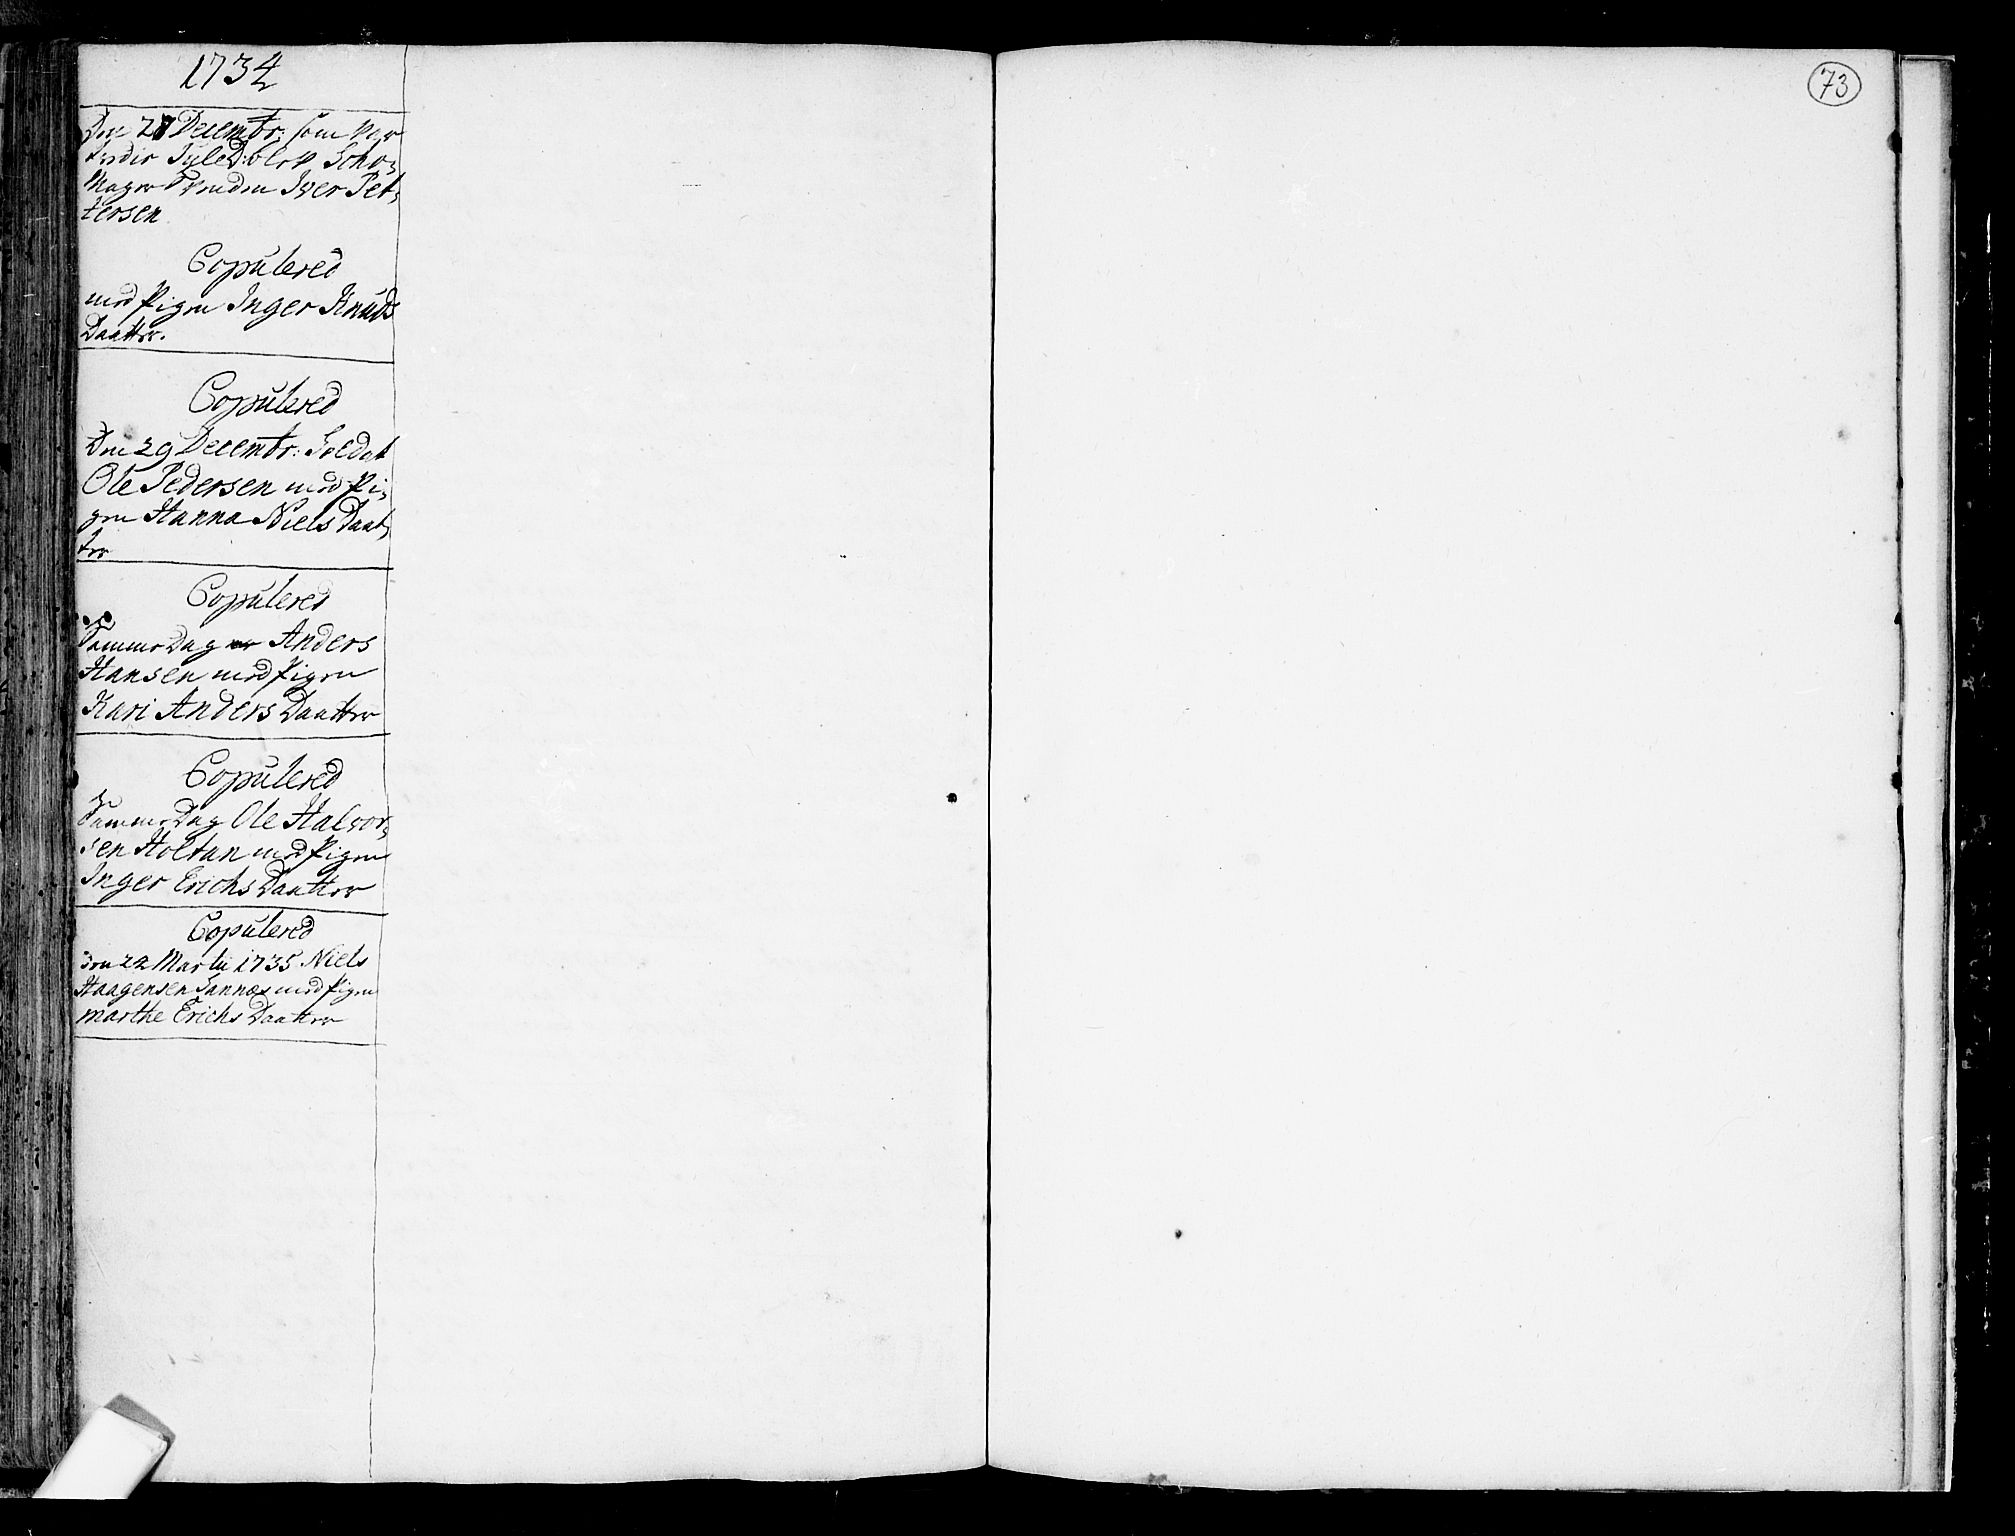 1734
Den 27 Decembr: som var
Tredie Jule D: blev Scho-
Mager Svenden Iver Pet-
tersen
Copulered
med Pigen Inger Knuds
Daatter.
Copulered
Den 29 Decembr: Soldat
Ole Pedersen med Pi-
gen Hanna Niels Daat-
ter
Copulered
Samme Dag Anders
Hansen med Pigen
Kari Anders Daatter
Copulered
Samme Dag Ole Halvor-
sen Holtan med Pigen
Inger Erichs Daatter
Copulered
Den 22 Martii 1735 Niels
Haagensen Sannes med Pigen
Marthe Erichs Daatter
73